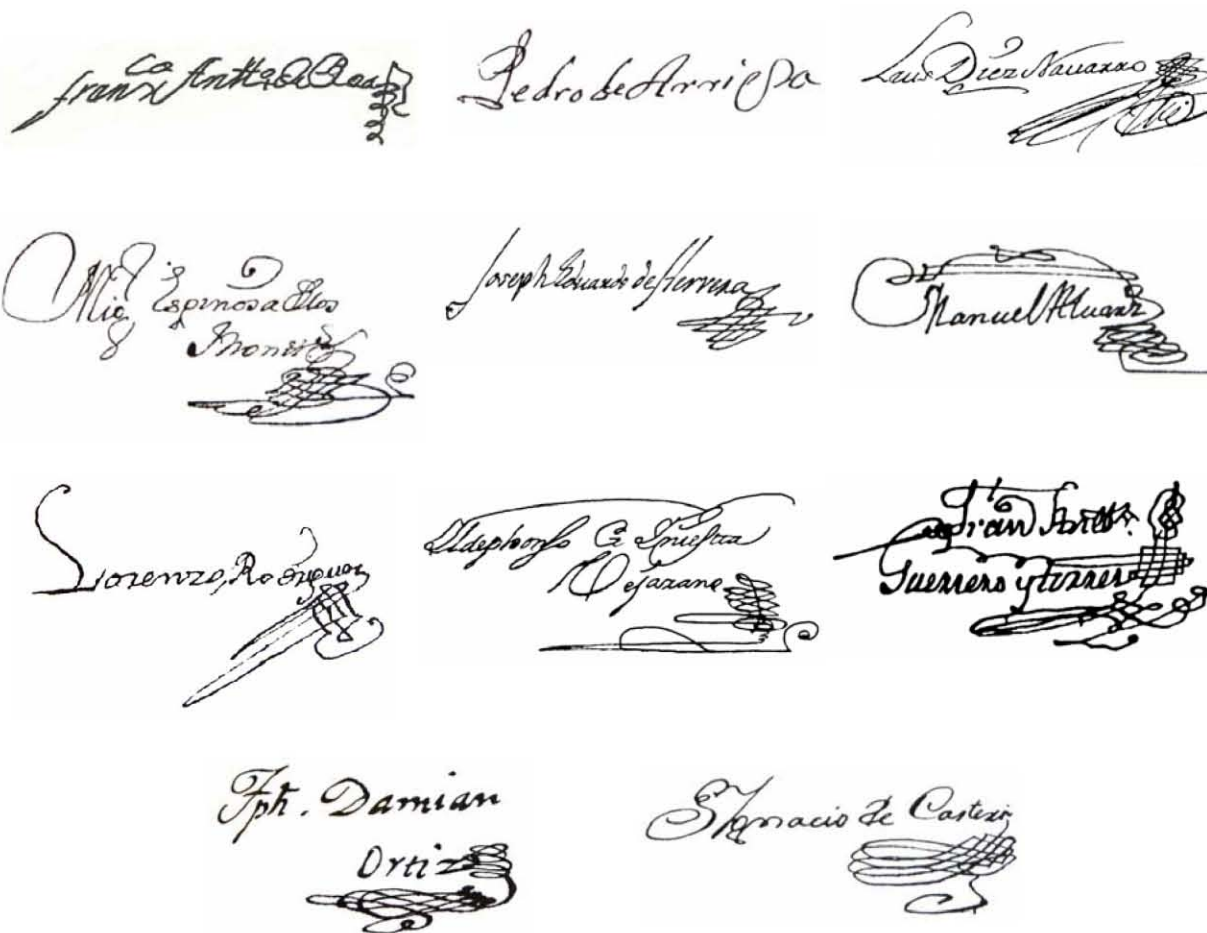 Fran^co Antt^o de Roa
Pedro de Arrieta
Luis Diez Nauarro
Mig^l Espinosa de los
Monter^s
Joseph Eduardo de Herrera
Manuel Aluarz
Lorenzo Rodriguez
Ildephonso Iniestra
Vejarano
Fran Antt^o
Guerrero y Torres
Jph. Damian
Ortiz
Ignacio de Castera